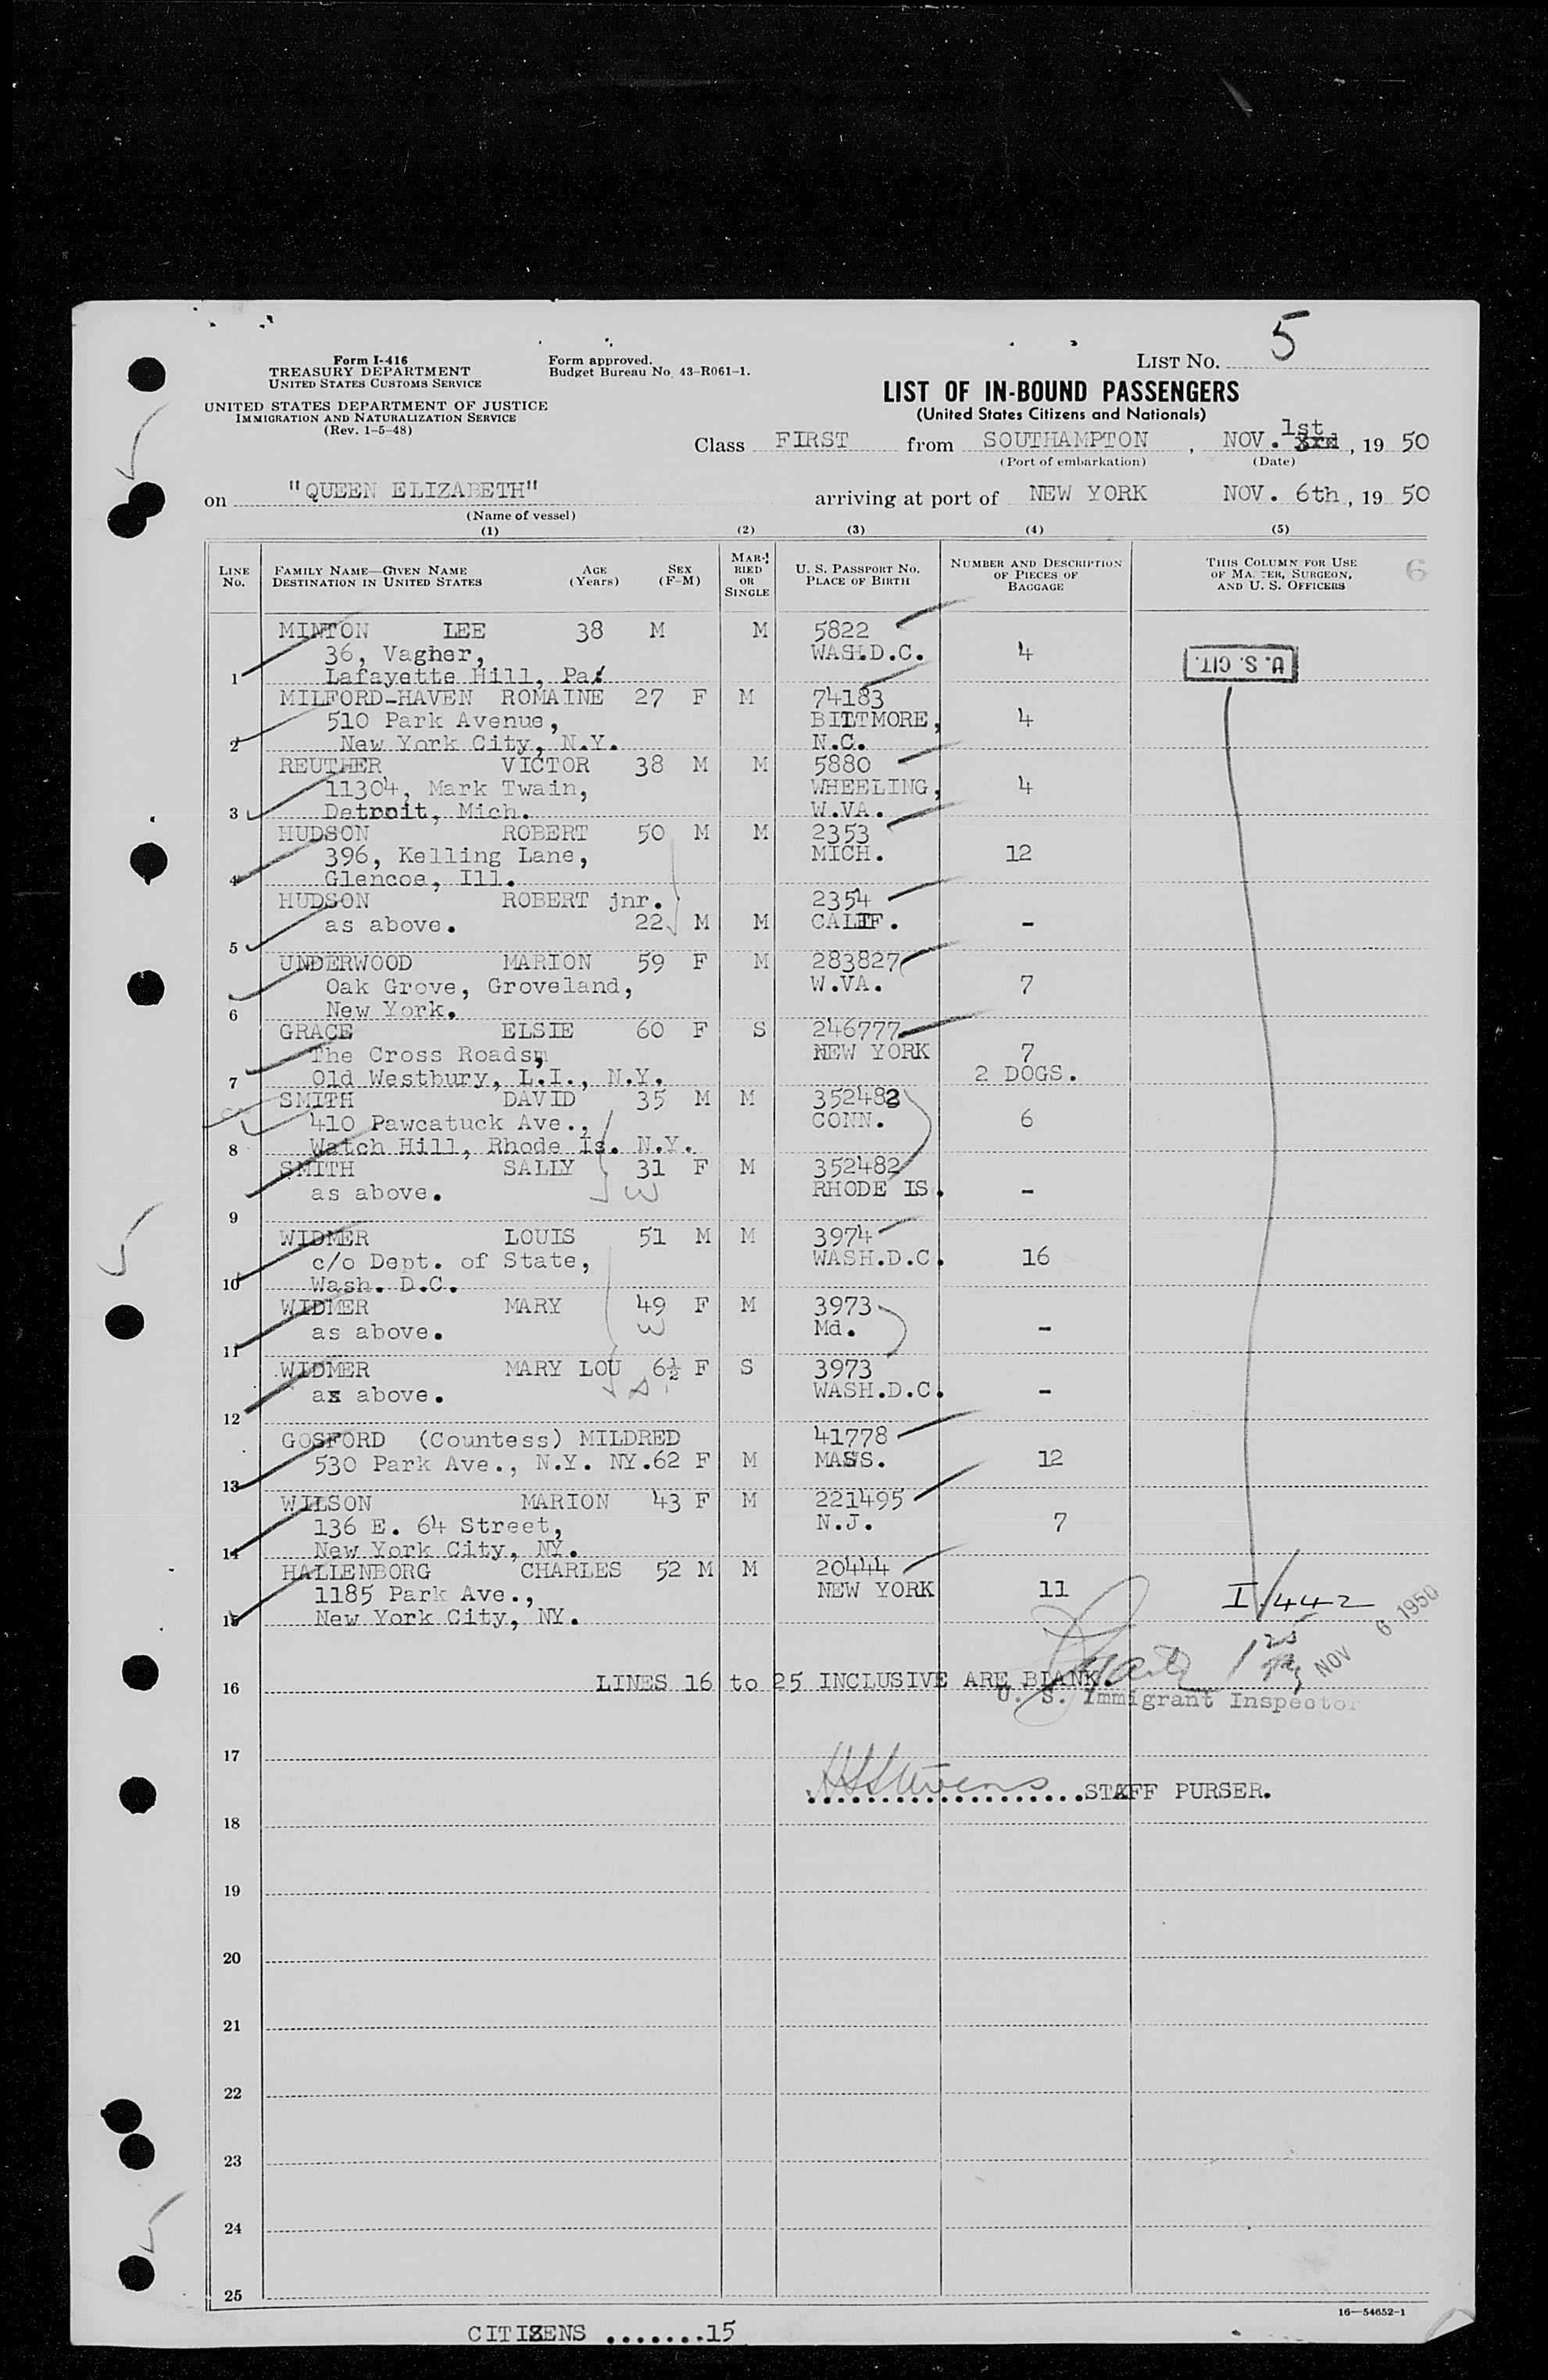 5
Form I-416
TREASURY DEPARTMENT
UNITED STATES CUSTOMS SERVICE
UNITED STATES DEPARTMENT OF JUSTICE
IMMIGRATION AND NATURALIZATION SERVICE
(Rev. 1-5-48)
Form approved.
Budget Bureau No. 43-R061-1.
LIST NO.
LIST OF IN-BOUND PASSENGERS
(United States Citizens and Nationals)
Class FIRST from SOUTHAMPTON , NOV. 1st 3rd , 19 50
(Port of embarkation) (Date)
on "QUEEN ELIZABETH" arriving at port of NEW YORK NOV. 6th , 19 50
(Name of vessel)
(1) (2) (3) (4) (5)
LINE NO. FAMILY NAME—GIVEN NAME DESTINATION IN UNITED STATES AGE (Years) SEX (F-M) MARRIED OR SINGLE U. S. PASSPORT NO. PLACE OF BIRTH NUMBER AND DESCRIPTION OF PIECES OF BAGGAGE THIS COLUMN FOR USE OF MASTER, SURGEON, AND U. S. OFFICERS 6
MINTON LEE 38 M M 5822
36, Vagher, WASH.D.C. 4 U. S. CIT.
1 Lafayette Hill, Pa.
MILFORD-HAVEN ROMAINE 27 F M 74183
510 Park Avenue, BILTMORE, 4
2 New York City, N.Y. N.C.
REUTHER VICTOR 38 M M 5880
11304, Mark Twain, WHEELING, 4
3 Detroit, Mich. W.VA.
HUDSON ROBERT 50 M M 2353
396, Kelling Lane, MICH. 12
4 Glencoe, Ill.
HUDSON ROBERT jnr. 2354
as above. 22 M M CALIF. -
5
UNDERWOOD MARION 59 F M 283827
Oak Grove, Groveland, W.VA. 7
6 New York.
GRACE ELSIE 60 F S 246777
The Cross Roads, NEW YORK 7
7 Old Westbury, L.I., N.Y. 2 DOGS.
SMITH DAVID 35 M M 352483
410 Pawcatuck Ave., CONN. 6
8 Watch Hill, Rhode Is. N.Y.
SMITH SALLY 31 F M 352482
as above. W RHODE IS. -
9
WIDMER LOUIS 51 M M 3974
c/o Dept. of State, WASH.D.C. 16
10 Wash. D.C.
WIDMER MARY 49 F M 3973
as above. W Md. -
11
WIDMER MARY LOU 6½ F S 3973
as above. WASH.D.C. -
12
GOSFORD (Countess) MILDRED 41778
530 Park Ave., N.Y. NY. 62 F M MASS. 12
13
WILSON MARION 43 F M 221495
136 E. 64 Street, N.J. 7
14 New York City, NY.
HALLENBORG CHARLES 52 M M 20444
1185 Park Ave., NEW YORK 11 I/442
15 New York City, NY.
NOV 6 1950
16 LINES 16 to 25 INCLUSIVE ARE BLANK.
U. S. Immigrant Inspector
17
STAFF PURSER.
18
19
20
21
22
23
24
25
16—54652-1
CITIZENS .......15